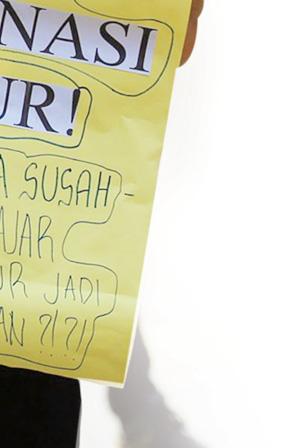 NASI
UR!
A SUSAH-
AJAR
UR JADI
AN ?!?!